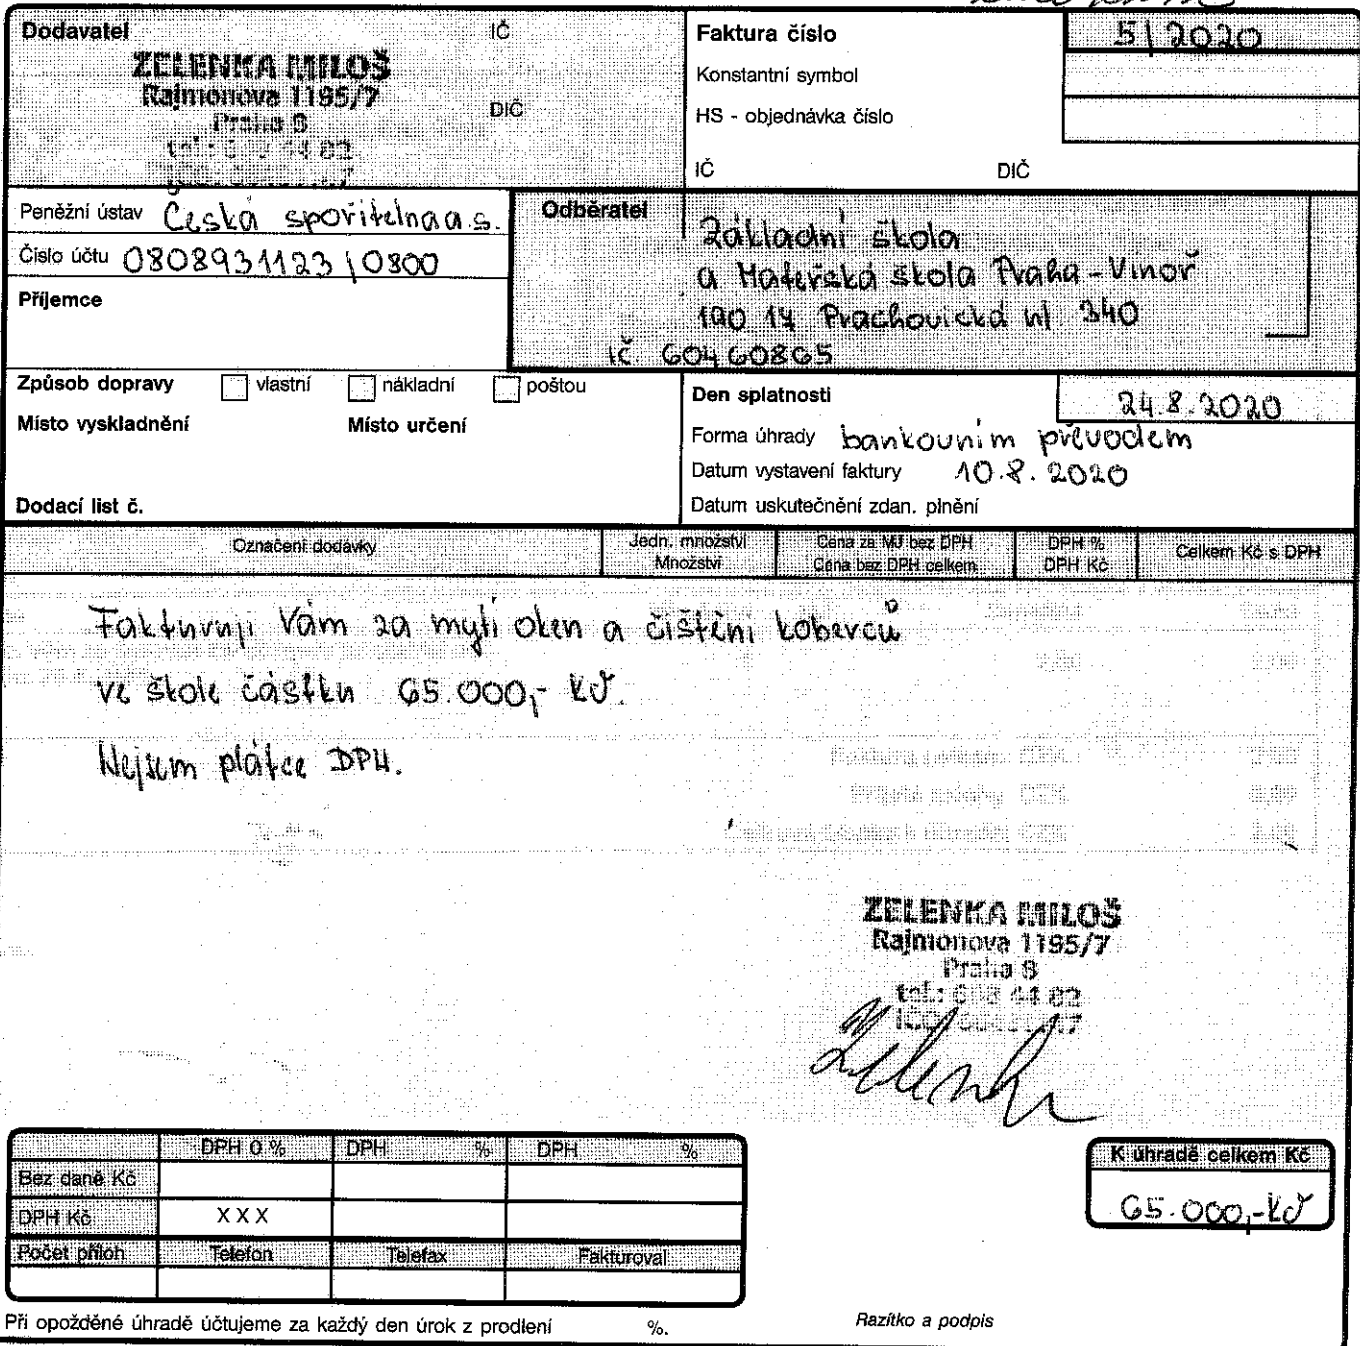 Dodavatel IČ
ZELENKA MILOŠ
Rajmonova 1195/7
Praha 8
DIČ
Faktura číslo 5/2020
Konstantní symbol
HS - objednávka číslo
IČ DIČ
Peněžní ústav Česká spořitelna a.s.
Číslo účtu 0808931123/0800
Příjemce
Odběratel
Základní škola
a Mateřská škola Praha-Vinoř
190 17 Prachovická ul 340
IČ 60460865
Způsob dopravy vlastní nákladní poštou
Místo vyskladnění Místo určení
Dodací list č.
Den splatnosti 24.8.2020
Forma úhrady bankovním převodem
Datum vystavení faktury 10.8.2020
Datum uskutečnění zdan. plnění
Označení dodávky
Jedn. množství
Množství
Cena za MJ bez DPH
Cena bez DPH celkem
DPH %
DPH Kč
Celkem Kč s DPH
Fakturuji Vám za mytí oken a čištění koberců
ve škole částku 65.000,- Kč.
Nejsem plátce DPH.
ZELENKA MILOŠ
Rajmonova 1195/7
Praha 8
Zelenka
DPH 0 % DPH % DPH %
Bez daně Kč
DPH Kč XXX
Počet příloh Telefon Telefax Fakturoval
K úhradě celkem Kč
65.000,-Kč
Při opožděné úhradě účtujeme za každý den úrok z prodlení %.
Razítko a podpis